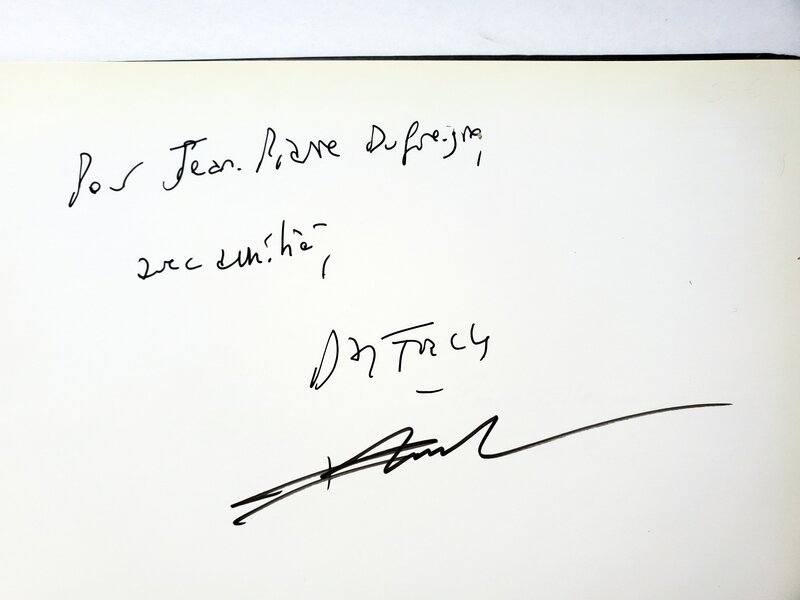 Pour Jean-Pierre Dufreigne,
avec amitié,
Dan Franck